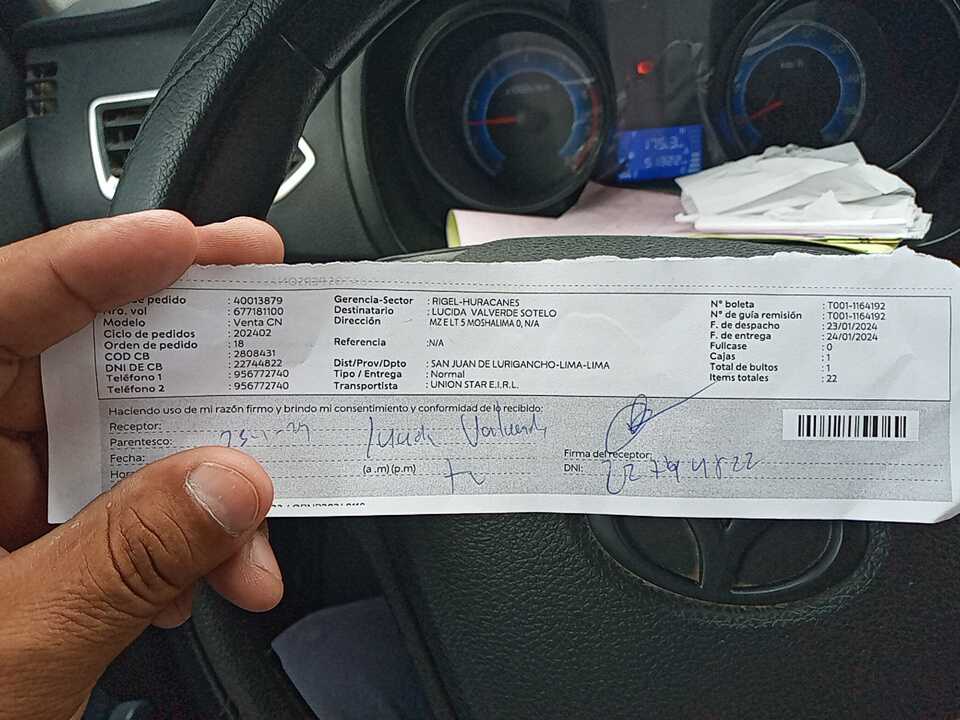 de pedido : 40013879
Nro. vol : 677181100
Modelo : Venta CN
Ciclo de pedidos : 202402
Orden de pedido : 18
COD CB : 2808431
DNI DE CB : 22744822
Teléfono 1 : 956772740
Teléfono 2 : 956772740
Gerencia-Sector : RIGEL-HURACANES
Destinatario : LUCIDA VALVERDE SOTELO
Dirección MZ E LT 5 MOSHALIMA 0, N/A
Referencia :N/A
Dist/Prov/Dpto : SAN JUAN DE LURIGANCHO-LIMA-LIMA
Tipo / Entrega : Normal
Transportista : UNION STAR E.I.R.L.
N° boleta : T001-1164192
N° de guía remisión : T001-1164192
F. de despacho : 23/01/2024
F. de entrega : 24/01/2024
Fullcase : 0
Cajas : 1
Total de bultos : 1
Items totales : 22
Haciendo uso de mi razón firmo y brindo mi consentimiento y conformidad de lo recibido:
Receptor: Lucida Valverde
Parentesco:
Fecha:
(a .m)(p.m)
Firma del receptor:
DNI:
175.3